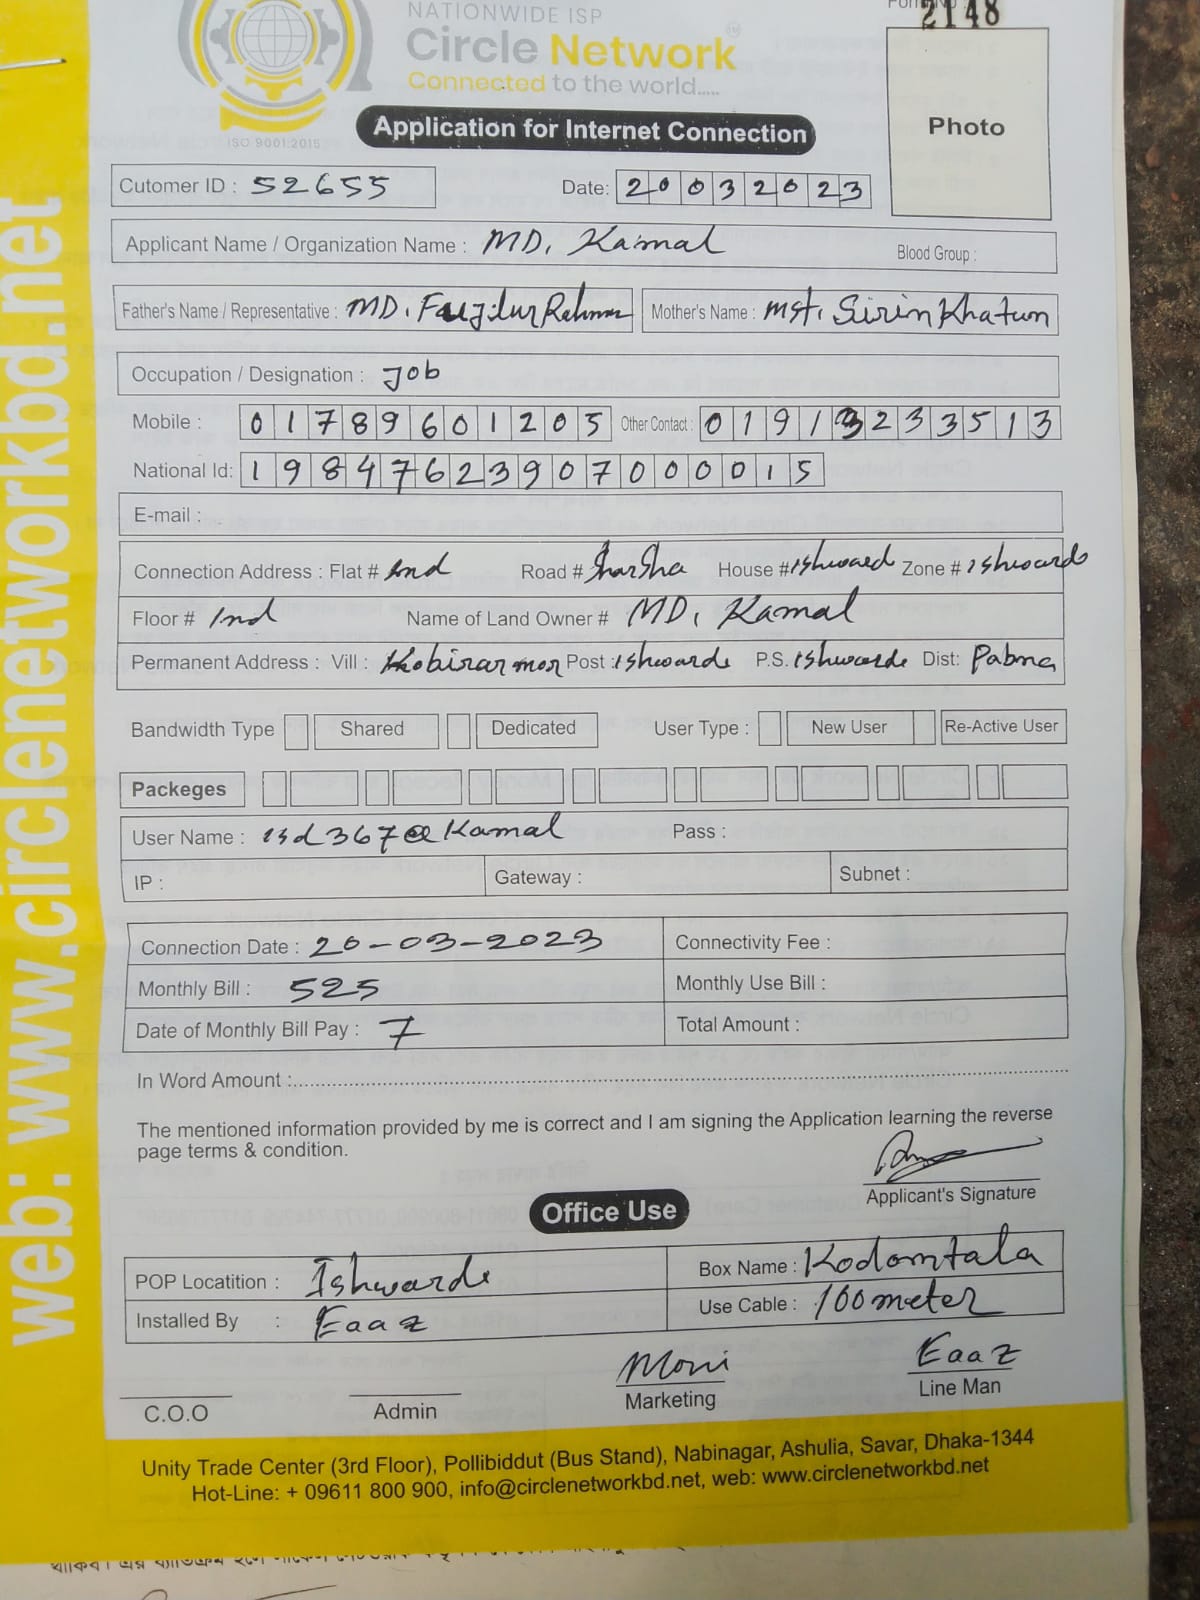 Form No :
2148
NATIONWIDE ISP
Circle Network
Connected to the world.....
ISO 9001:2015
Application for Internet Connection
Photo
Cutomer ID : 52655 Date: 20032023
Applicant Name / Organization Name : MD. Kamal Blood Group :
Father's Name / Representative : MD. Fazilur Rahman Mother's Name : Mst. Sirin Khatun
Occupation / Designation : Job
Mobile : 01789601205 Other Contact : 01913233513
National Id: 19847623907000015
E-mail :
Connection Address : Flat # 2nd Road # House # Ishwardi Zone # Ishwardi
Floor # 2nd Name of Land Owner # MD. Kamal
Permanent Address : Vill : Post : Ishwardi P.S. Ishwardi Dist: Pabna
Bandwidth Type Shared Dedicated User Type : New User Re-Active User
Packeges
User Name : Kamal Pass :
IP : Gateway : Subnet :
Connection Date : 20-03-2023 Connectivity Fee :
Monthly Bill : 525 Monthly Use Bill :
Date of Monthly Bill Pay : 7 Total Amount :
In Word Amount :
The mentioned information provided by me is correct and I am signing the Application learning the reverse
page terms & condition.
Applicant's Signature
Office Use
POP Locatition : Ishwardi Box Name : Kodomtala
Installed By : Eaaz Use Cable : 100 meter
Moni Eaaz
C.O.O Admin Marketing Line Man
Unity Trade Center (3rd Floor), Pollibiddut (Bus Stand), Nabinagar, Ashulia, Savar, Dhaka-1344
Hot-Line: + 09611 800 900, info@circlenetworkbd.net, web: www.circlenetworkbd.net
web: www.circlenetworkbd.net